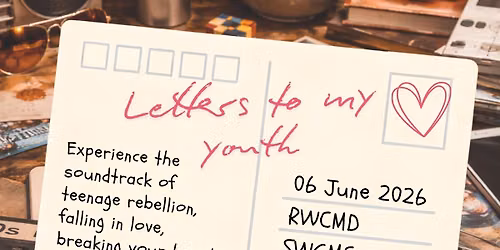 Letters to my
youth
Experience the
soundtrack of
teenage rebellion,
falling in love,
breaking your
06 June 2026
RWCMD